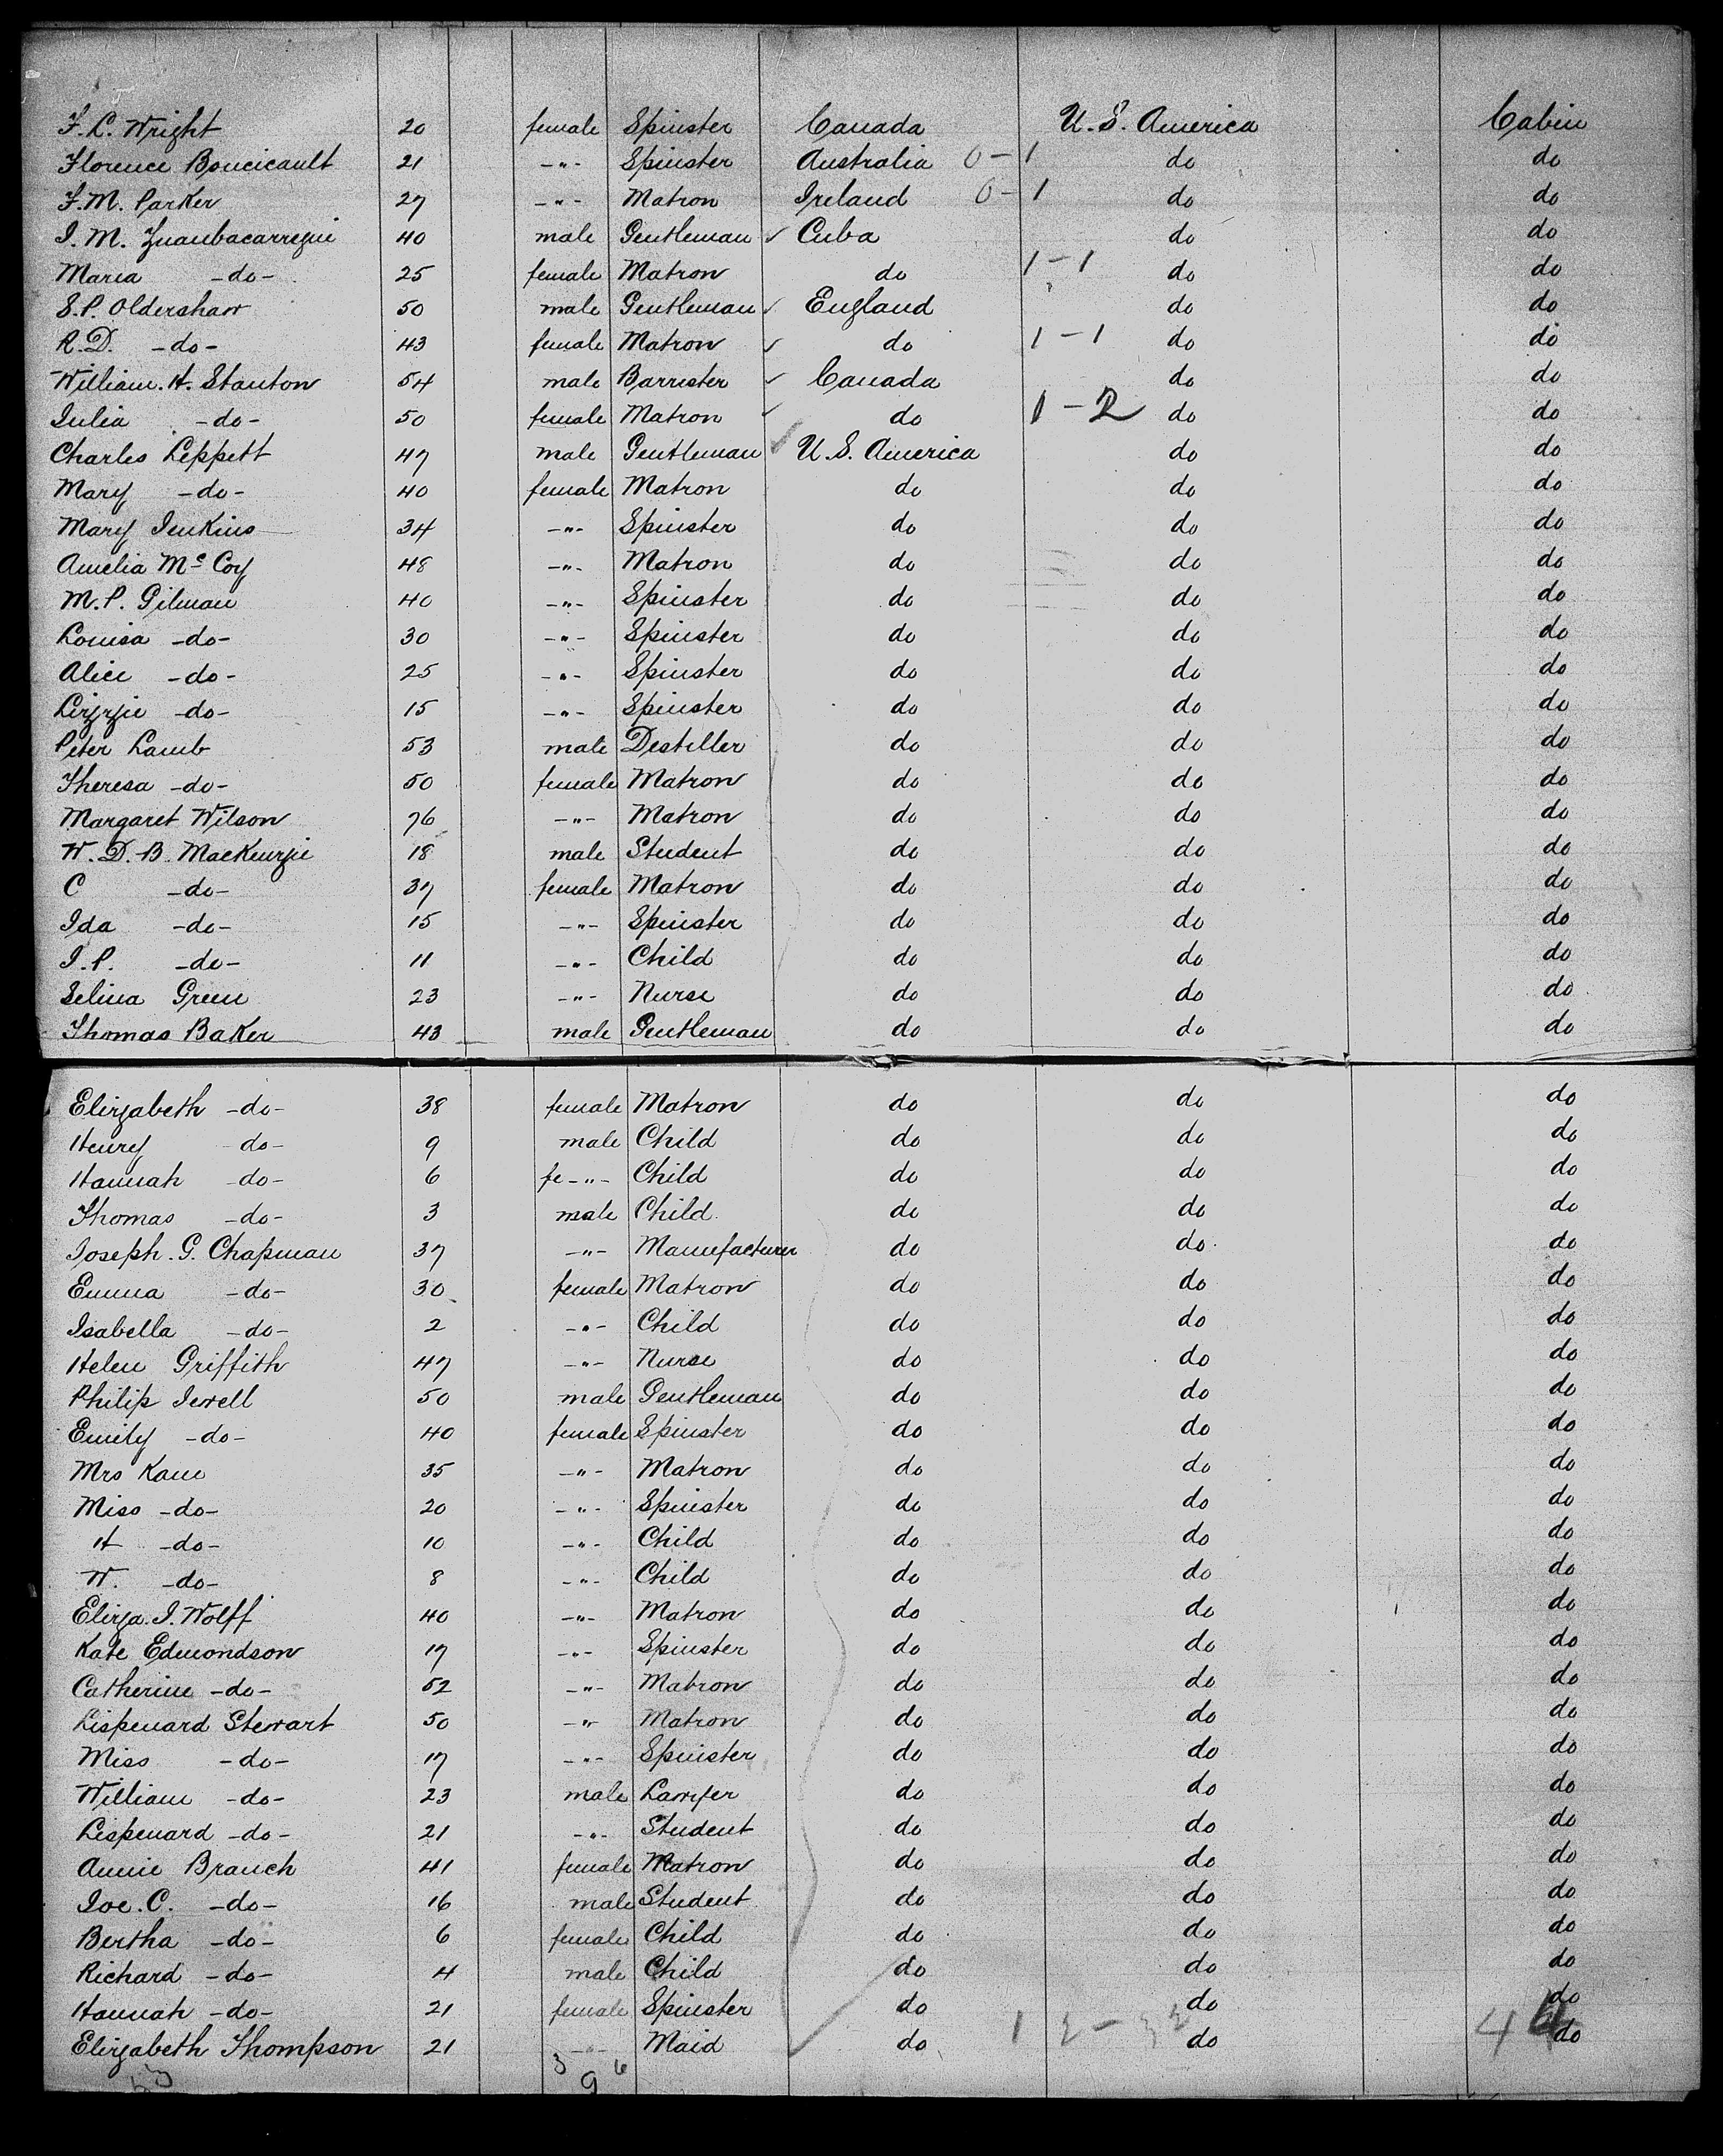 F. L. Wright 20 female Spinster Canada U. S. America Cabin
Florence Boucicault 21 -"- Spinster Australia 0-1 do do
F. M. Parker 27 -"- Matron Ireland 0-1 do do
I. M. 40 male Gentleman ✓ Cuba do do
Maria -do- 25 female Matron do 1-1 do do
S. P. Oldershaw 50 male Gentleman ✓ England do do
R. D. -do- 43 female Matron ✓ do 1-1 do do
William. H. Stanton 54 male Barrister ✓ Canada do do
Julia -do- 50 female Matron ✓ do 1-2 do do
Charles Leppett 47 male Gentleman ✓ U. S. America do do
Mary -do- 40 female Matron do do do
Mary Jenkins 34 -"- Spinster do do do
Amelia Mc Coy 48 -"- Matron do do do
M. P. Gilman 40 -"- Spinster do do do
Louisa -do- 30 -"- Spinster do do do
Alice -do- 25 -"- Spinster do do do
Lizzie -do- 15 -"- Spinster do do do
Peter Lamb 53 male Destiller do do do
Theresa -do- 50 female Matron do do do
Margaret Wilson 76 -"- Matron do do do
W. D. B. MacKenzie 18 male Student do do do
C -do- 37 female Matron do do do
Ida -do- 15 -"- Spinster do do do
I. P. -do- 11 -"- Child do do do
Selina Green 23 -"- Nurse do do do
Thomas Baker 43 male Gentleman do do do
Elizabeth -do- 38 female Matron do do do
Henry do- 9 male Child do do do
Hannah -do- 6 fe-"- Child do do do
Thomas -do- 3 male Child do do do
Joseph. G. Chapman 37 -"- Manufacturer do do do
Emma -do- 30 female Matron do do do
Isabella -do- 2 -"- Child do do do
Helen Griffith 47 -"- Nurse do do do
Philip Jewell 50 male Gentleman do do do
Emily -do- 40 female Spinster do do do
Mrs Kane 35 -"- Matron do do do
Miss -do- 20 -"- Spinster do do do
H -do- 10 -"- Child do do do
W. -do- 8 -"- Child do do do
Eliza. I. Wolff 40 -"- Matron do do do
Kate Edmondson 17 -"- Spinster do do do
Catherine -do- 52 -"- Matron do do do
Lispenard Stewart 50 -"- Matron do do do
Miss -do- 17 -"- Spinster do do do
William -do- 23 male Lawyer do do do
Lispenard -do- 21 -"- Student do do do
Annie Branch 41 female Matron do do do
Joe. C. -do- 16 male Student do do do
Bertha -do- 6 female Child do do do
Richard -do- 4 male Child do do do
Hannah -do- 21 female Spinster do do do
Elizabeth Thompson 21 -"- Maid do do do
3 9 6